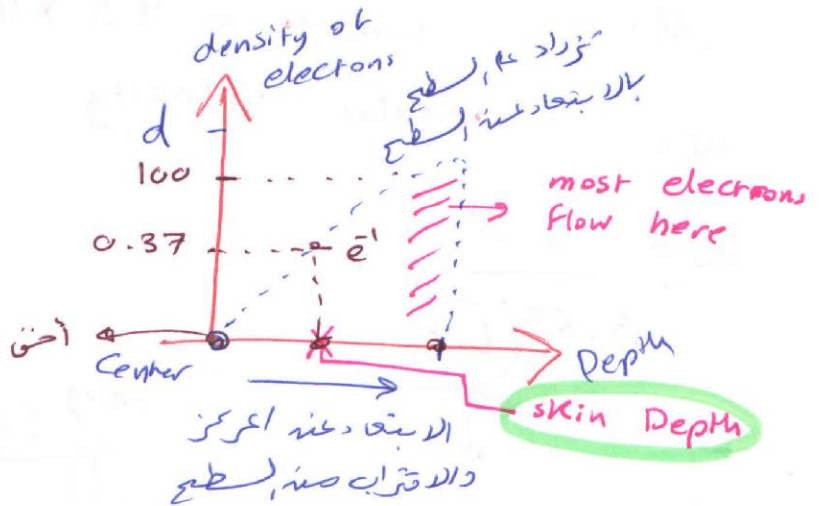 density of
electrons
تزداد عند السطح
بالابتعاد عن السطح
d
100
0.37
e⁻¹
most electrons
flow here
أعمق
Center
Depth
skin Depth
الابتعاد عن المركز
والاقتراب من السطح